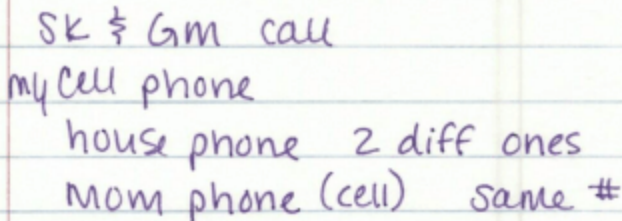 SK & Gm call
my cell phone
house phone 2 diff ones
mom phone (cell) same #